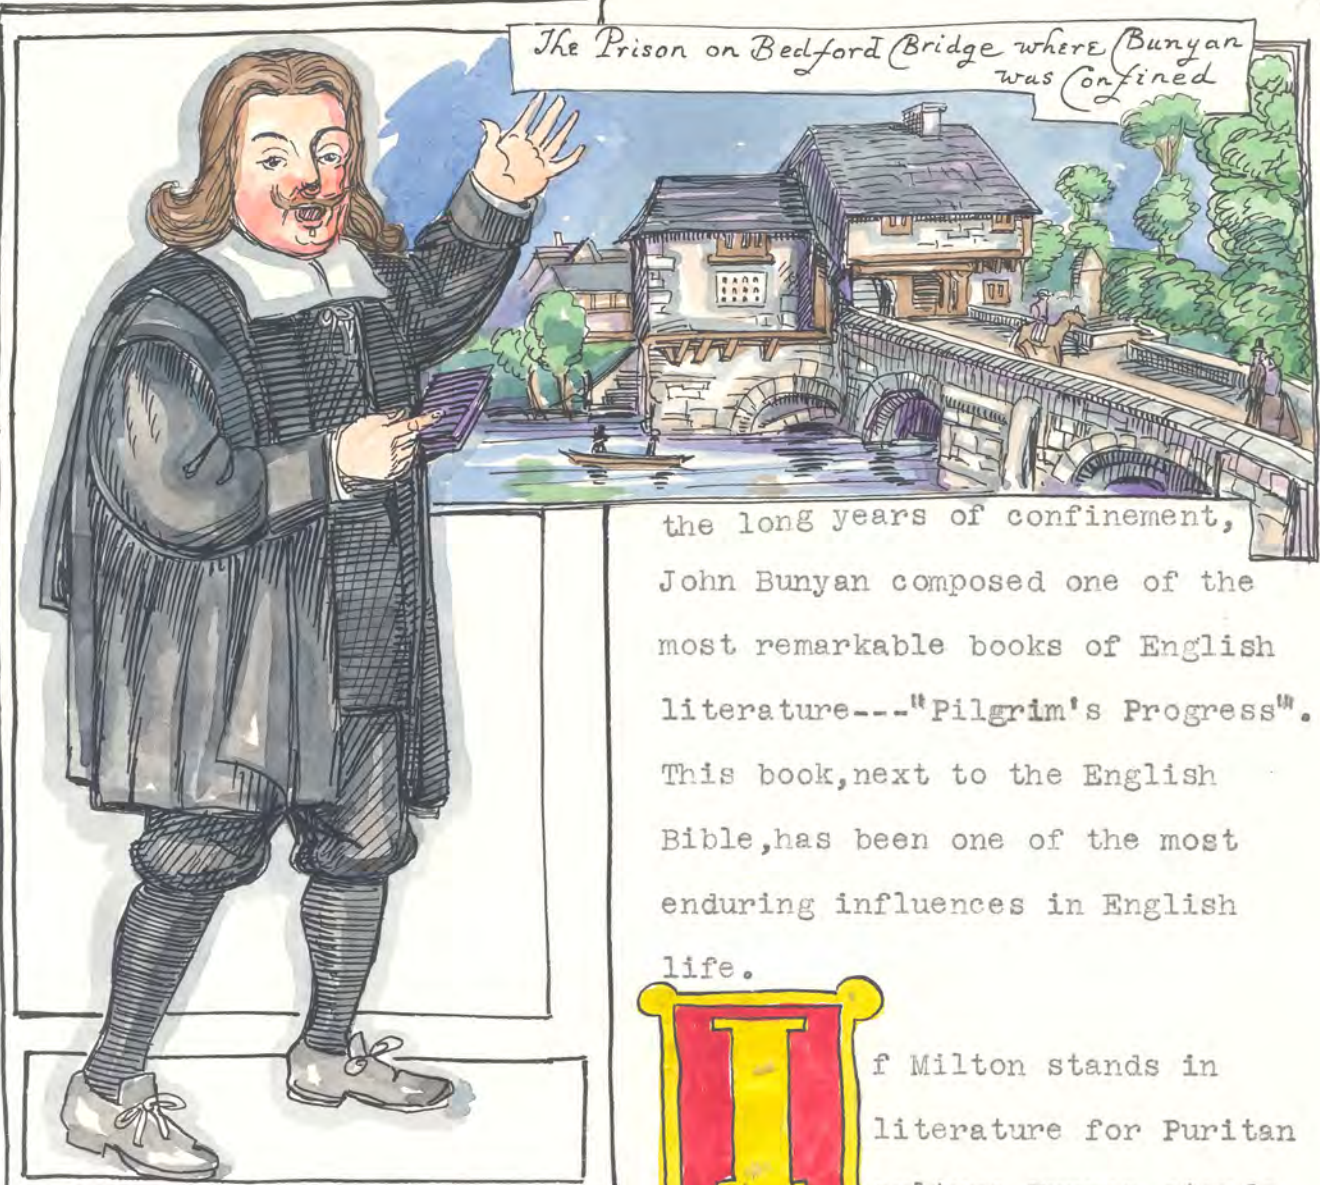 The Prison on Bedford Bridge where Bunyan
was Confined
the long years of confinement,
John Bunyan composed one of the
most remarkable books of English
literature---"Pilgrim's Progress".
This book,next to the English
Bible,has been one of the most
enduring influences in English
life.
If Milton stands in
literature for Puritan